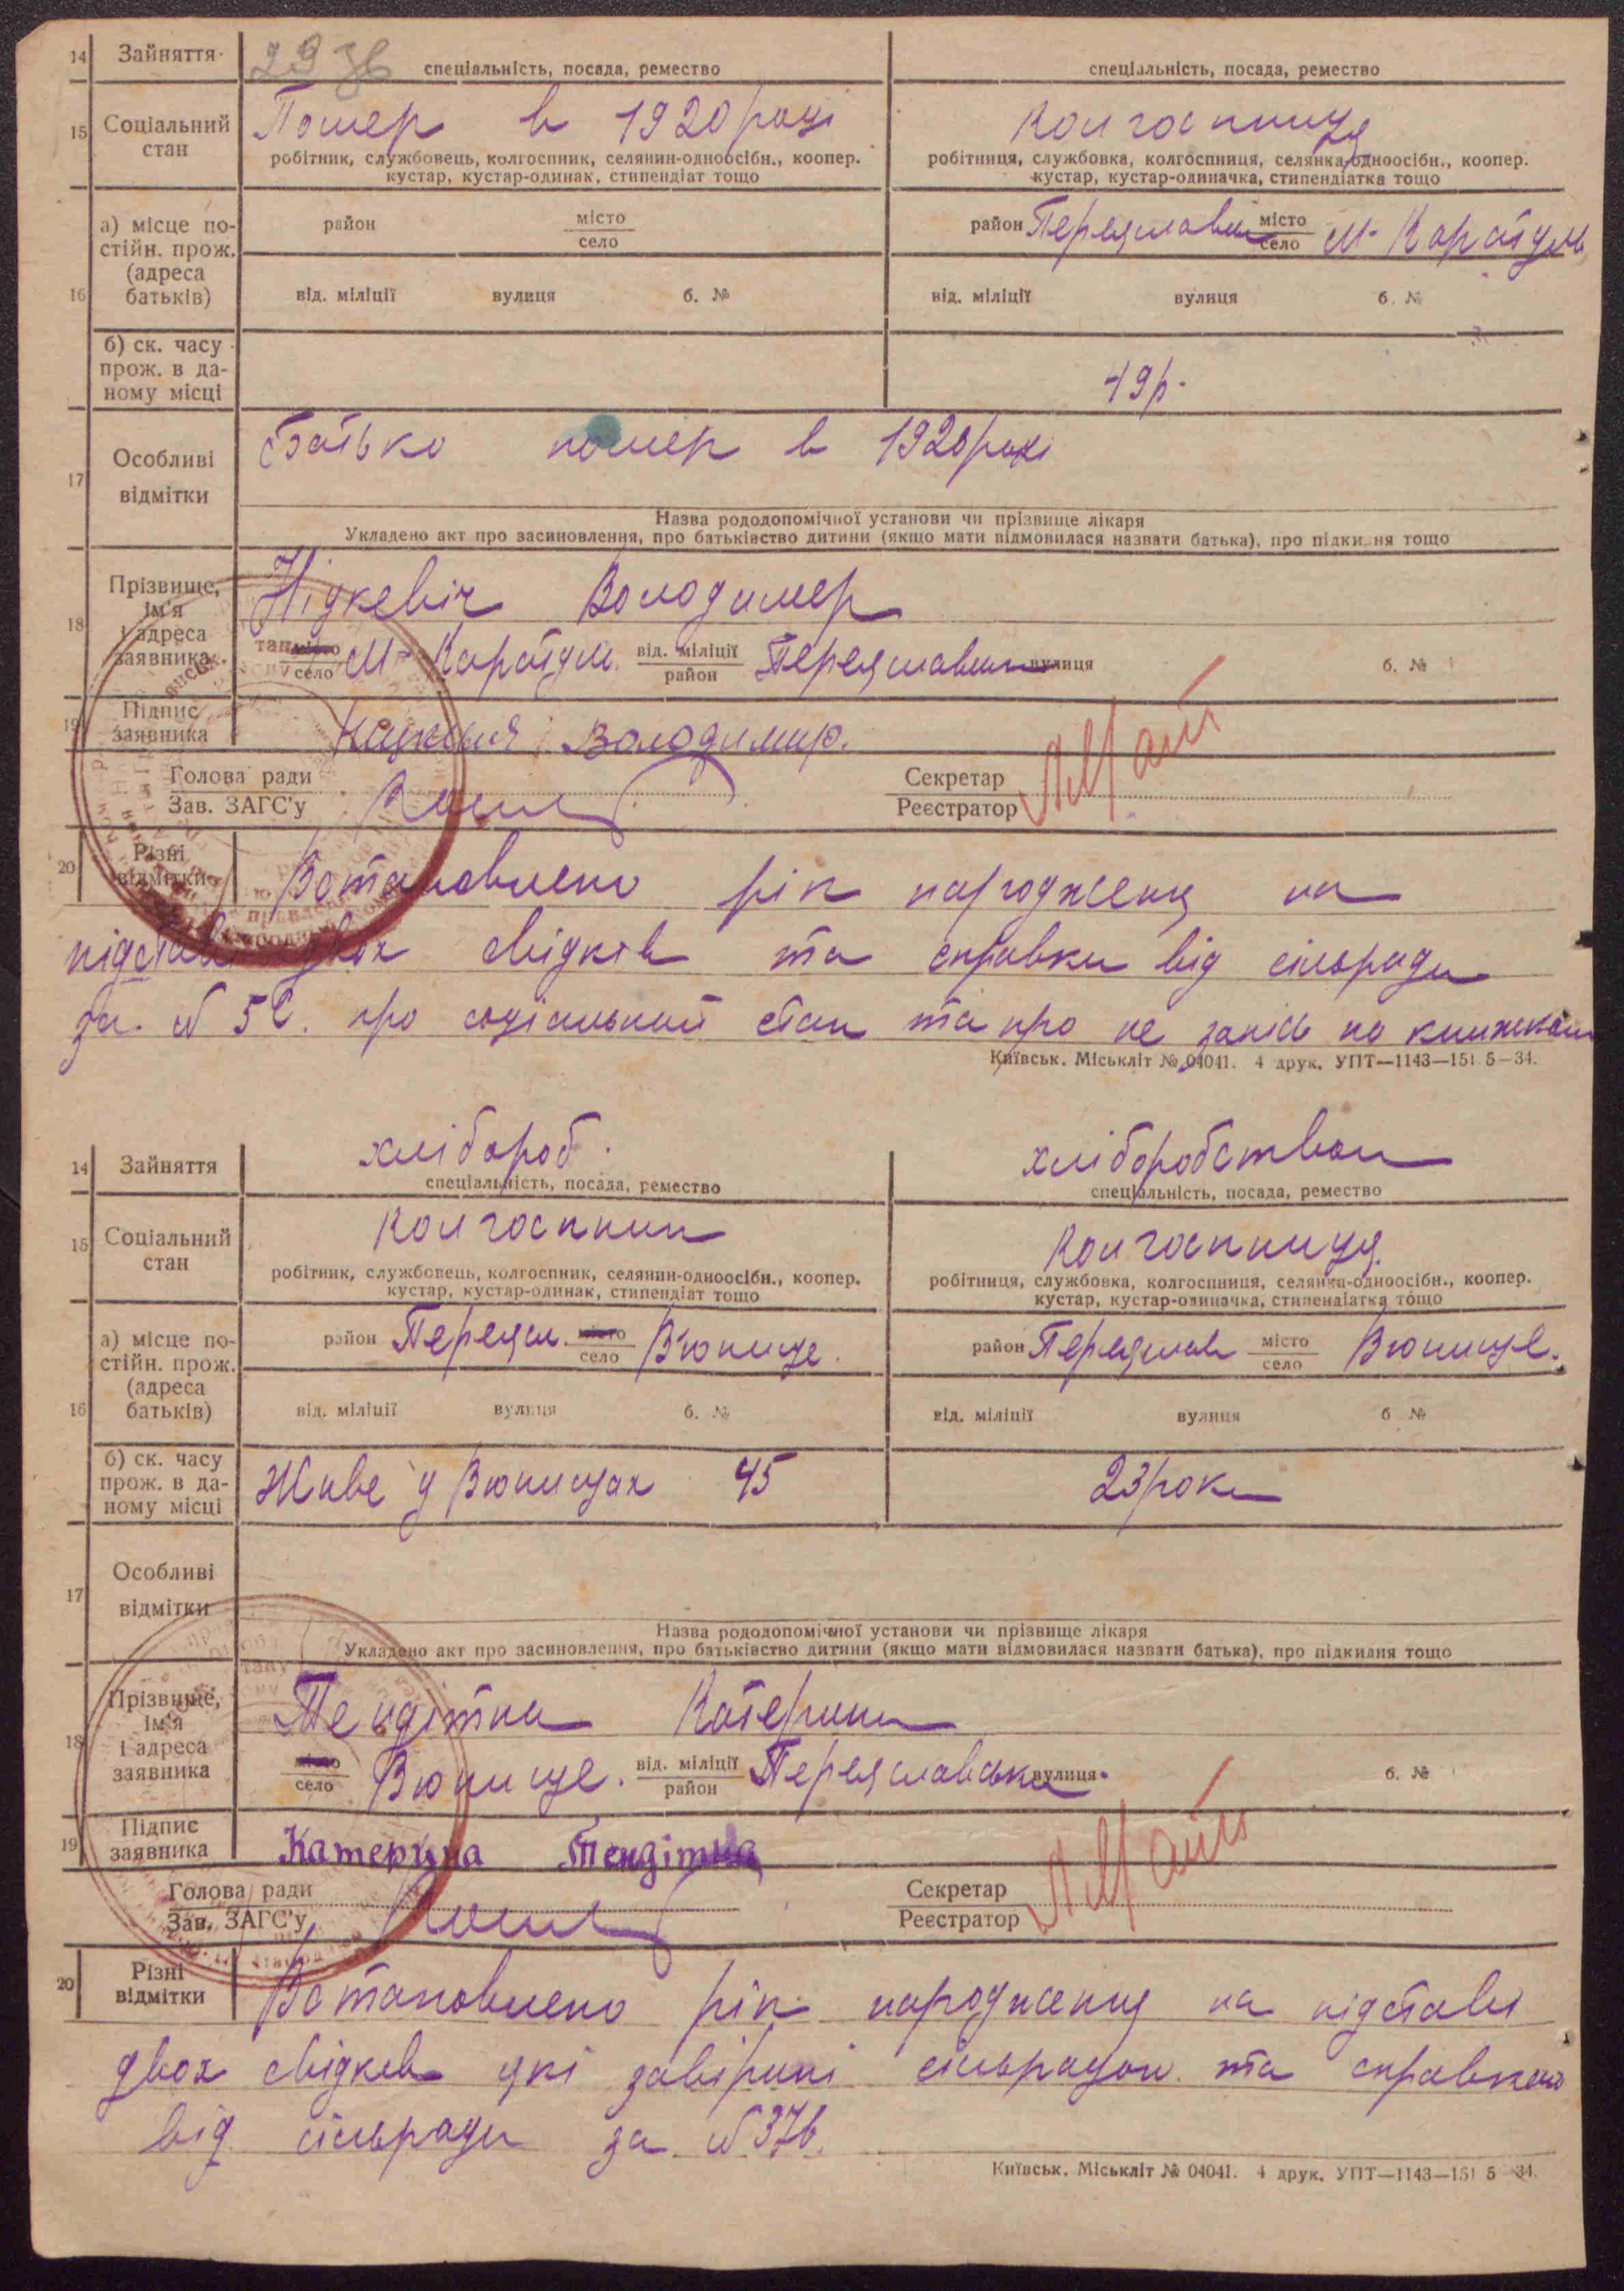 14 Зайняття 29 36 спеціальність, посада, ремество спеціальність, посада, ремество
15 Соціальний стан Помер в 1920 році Колгоспниця
робітник, службовець, колгоспник, селянин-одноосібн., коопер. робітниця, службовка, колгоспниця, селянка-одноосібн., коопер.
кустар, кустар-одинак, стипендіат тощо кустар, кустар-одиначка, стипендіатка тощо
а) місце по- район місто район Переяславськ місто М-Каратуль
стійн. прож. село село
(адреса
16 батьків) від. міліції вулиця б. № від. міліції вулиця б. №
б) ск. часу
прож. в да- 49 р.
ному місці
17 Особливі відмітки Батько помер в 1920 році
Назва рододопомічної установи чи прізвище лікаря
Укладено акт про засиновлення, про батьківство дитини (якщо мати відмовилася назвати батька), про підки ня тощо
18 Прізвище, ім'я Володимер
і адреса заявника місто село М-Каратул. від. міліції район Переяславськ вулиця б. №
19 Підпис заявника Володимир.
Голова ради Секретар
Зав. ЗАГС'у Реєстратор
20 Різні відмітки Встановлено рік народженя на
підставі двох свідків та справки від сільради
за. № про соціальний стан та про не запісь по книжкам
Київськ. Міськліт № 04041. 4 друк. УПТ—1143—151 5—34.
14 Зайняття хлібороб. хліборобством
спеціальність, посада, ремество спеціальність, посада, ремество
15 Соціальний стан Колгоспник Колгоспниця.
робітник, службовець, колгоспник, селянин-одноосібн., коопер. робітниця, службовка, колгоспниця, селянка-одноосібн., коопер.
кустар, кустар-одинак, стипендіат тощо кустар, кустар-одиначка, стипендіатка тощо
а) місце по- район Переясл. місто Вюнище. район Переяслав місто Вюнище.
стійн. прож. село село
(адреса
16 батьків) від. міліції вулиця б. № від. міліції вулиця б №
б) ск. часу
прож. в да- Живе у Вюнищах 45 23 роки
ному місці
17 Особливі
відмітки
Назва рододопомічної установи чи прізвище лікаря
Укладено акт про засиновлення, про батьківство дитини (якщо мати відмовилася назвати батька), про підкидня тощо
18 Прізвище, ім'я Тендітна Катерина
і адреса заявника місто село Вюнище. від. міліції район Переяславська вулиця б. №
19 Підпис заявника Катерина Тендітна
Голова ради Секретар
Зав. ЗАГС'у Реєстратор
20 Різні відмітки Встановлено рік народженя на підставі
двох свідків які завірині сільрадою та справкою
від сільради за № 376.
Київськ. Міськліт № 04041. 4 друк. УПТ—1143—151 5—34.